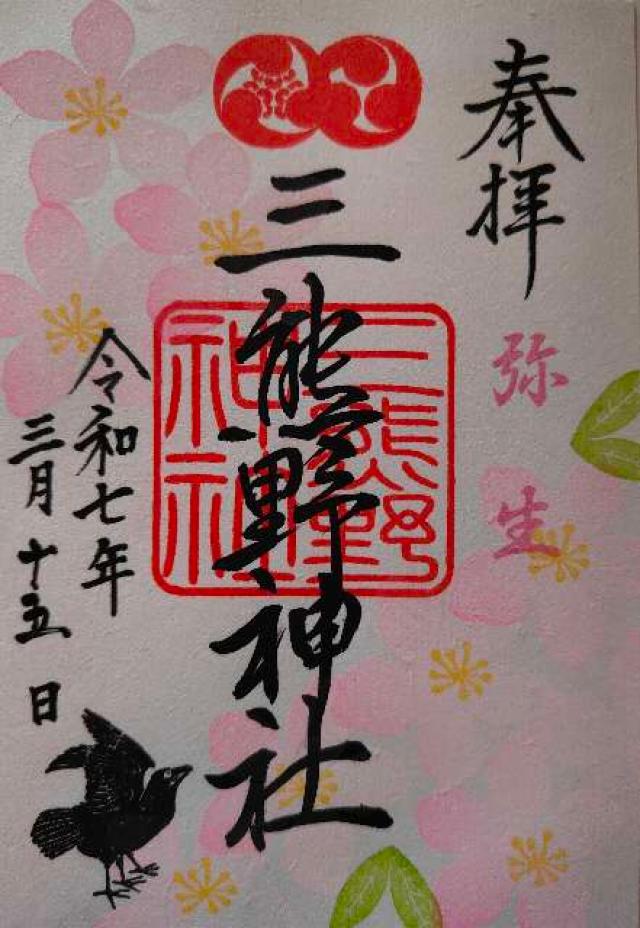 奉拝
弥生
三熊野神社
三熊野
神社
令和七年
三月十五日